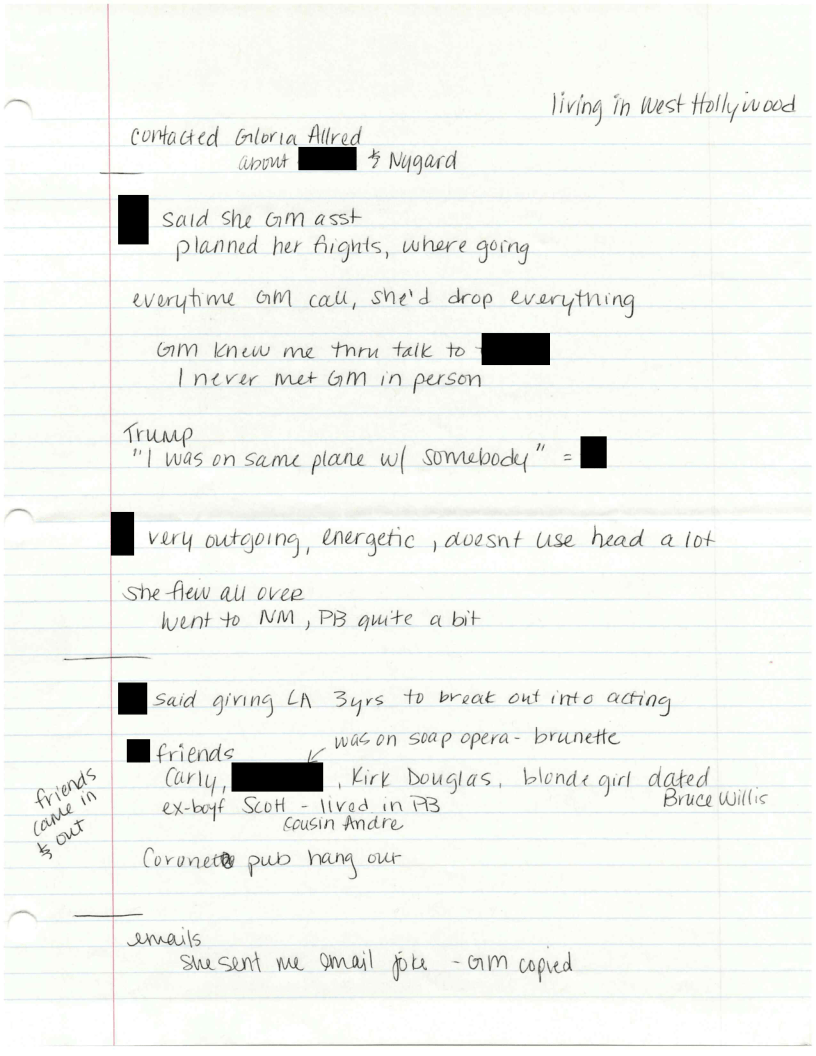 living in West Hollywood
contacted Gloria Allred
about & Nygard
said she GM asst
planned her flights, where going
everytime GM call, she'd drop everything
GM knew me thru talk to
I never met GM in person
Trump
"I was on same plane w/ somebody" =
very outgoing, energetic, doesnt use head a lot
she flew all over
went to NM, PB quite a bit
said giving LA 3yrs to break out into acting
friends
was on soap opera - brunette
Carly, , Kirk Douglas, blonde girl dated
Bruce Willis
ex-boyf Scott - lived in PB
cousin Andre
friends
came in
& out
Coronet pub hang out
emails
she sent me email joke - GM copied